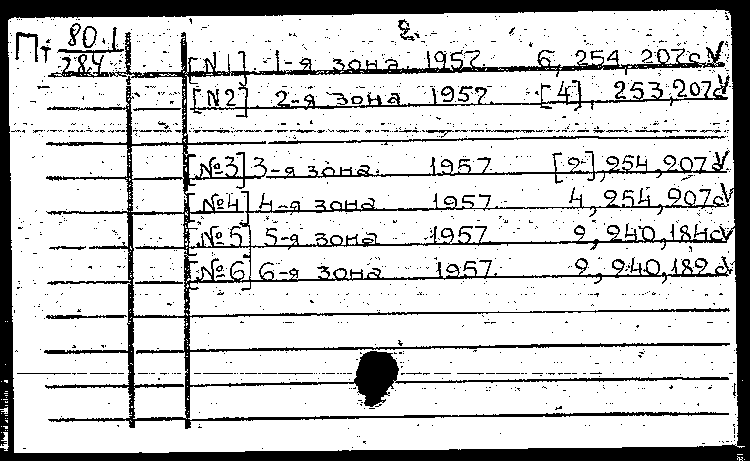 2.
Пт 80.1
284
[N1] 1-я зона 1957 6, 254, 207с V
[N2] 2-я зона 1957. [4], 253,207с V
[№3] 3-я зона. 1957 [2], 254,207с V
[№4] 4-я зона 1957 4, 254, 207с V
[№5] 5-я зона 1957. 2, 240, 184с V
[№6] 6-я зона 1957. 2, 240,182с V